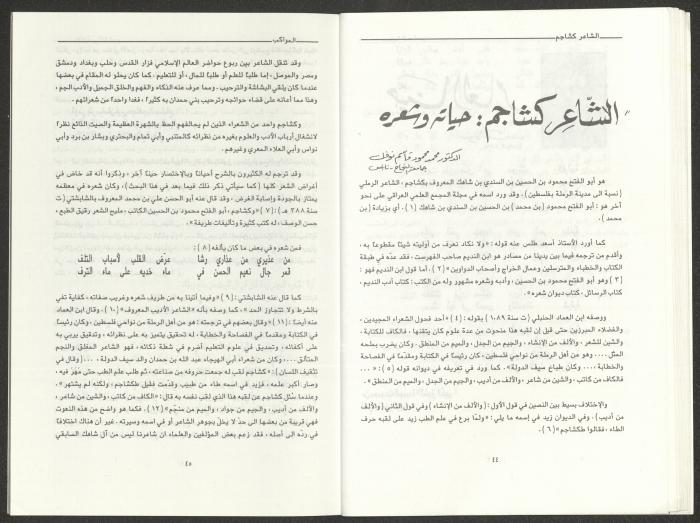 الشاعر كشاجم
الشاعر كشاجم : حياته وشعره
الدكتور محمد محمود قاسم نوفل
جامعة النجاح - نابلس
هو أبو الفتح محمود بن الحسين بن السندي بن شاهك المعروف بكشاجم، الشاعر الرملي
(نسبة الى مدينة الرملة بفلسطين). وقد ورد اسمه في مجلة المجمع العلمي العراقي على نحو
آخر هو: أبو الفتح محمود (بن محمد) بن الحسين بن السندي بن شاهك (١). أي بزيادة (بن
محمد)
كما أورد الأستاذ أسعد طلس عنه قوله: «ولا نكاد نعرف من أوليته شيئاً مقطوعاً به،
وأقدم من ترجمه فيما بين يدينا من مصادر هو ابن النديم صاحب الفهرست، فقد عدّه في طبقة
الكتاب والخطباء والمترسلين وعمال الخراج وأصحاب الدواوين» (٢). أما قول ابن النديم فهو:
(٣) وهو أبو الفتح محمود بن الحسين، وأدبه وشعره مشهور وله من الكتب: كتاب أدب النديم،
كتاب الرسائل، كتاب ديوان شعره».
ووصفه ابن العماد الحنبلي (ت ١٠٨٩) بقوله: (٤) «أحد فحول الشعراء المجيدين،
والفضلاء المبرزين حتى قيل إن لقبه هذا منحوت من عدة علوم كان يتقنها، فالكاف للكتابة،
والشين للشعر، والألف من الإنشاء، والجيم من الجدل، والميم من المنطق. وكان يضرب بملحه
المثل .... وهو من أهل الرملة من نواحي فلسطين، كان رئيساً في الكتابة ومقدماً في الفصاحة
والخطابة .... وكان طباخ سيف الدولة». كما ورد في تعريفه في ديوانه قوله (٥): « ...
فالكاف من كاتب، والشين من شاعر، والألف من أديب، والجيم من الجدل، والميم من المنطق».
والإختلاف بسيط بين النصين في قول الأول: (والألف من الإنشاء) وفي قول الثاني (والألف
من أديب). وفي الديوان زيد في إسمه ما يلي: «ولمّا برع في علم الطب زيد على لقبه حرف
الطاء، فقالوا طكشاجم» (٦).
٤٤
المواكب
وقد تنقل الشاعر بين ربوع حواضر العالم الإسلامي فزار القدس وحلب وبغداد ودمشق
ومصر والموصل، إما طلباً للعلم أو طلباً للمال، أو للتعليم، كما كان يحلو له المقام في بعضها
عندما كان يلقى البشاشة والترحيب. ومما عرف عنه الذكاء والفهم والخلق الجميل والأدب الجم،
وهذا مما أعانه على قضاء حوائجه وترحيب بني حمدان به كثيراً، فغدا واحداً من شعرائهم.
وكشاجم واحد من الشعراء الذين لم يحالفهم الحظ بالشهرة العظيمة والصيت الذائع نظراً
لانشغال أرباب الأدب والعلوم بغيره من نظرائه كالمتنبي وأبي تمام والبحتري وبشار بن برد وأبي
نواس وأبي العلاء المعري وغيرهم.
وقد ترجم له الكثيرون بالشرح أحياناً وبالإختصار حيناً آخر، وذكروا أنه قد خاض في
أغراض الشعر كلها (كما سيأتي ذكر ذلك فيما بعد في هذا البحث)، وكان شعره في معظمه
يمتاز بالجودة وإصابة الغرض. وقد قال عنه أبو الحسن علي بن محمد المعروف بالشابشتي (ت
سنة ٣٨٨ هـ): (٧) «وكشاجم، أبو الفتح محمود بن الحسين الكاتب، مليح الشعر رقيق الطبع،
حسن الوصف، له كتب كثيرة وتأليفات ظريفة».
فمن شعره في بعض ما كان يألفه (٨):
من عذيري من عذاري رشا عرّض القلب لأسباب التلف
قمر جال نعيم الحسن في ماء خديه على ماء الترف
كما قال عنه الشابشتي: (٩) «وفيما أتينا به من طريف شعره وغريب صفاته، كفاية تفي
بالشرط ولا تتجاوز الحد»، كما وصفه بأنه «الشاعر الأديب المعروف» (١٠). وقال ابن العماد
عنه أيضاً: (١١) «وقال بعضهم في ترجمته: هو من أهل الرملة من نواحي فلسطين، وكان رئيساً
في الكتابة ومقدماً في الفصاحة والخطابة، له تحقيق يتميز به على نظرائه، وتدقيق يربي به
على أكفائه، وتحديق في علوم التعليم أضرم في شعلة ذكائه، فهو الشاعر المفلق والنجم
المتألق .... وكان من شعراء أبي الهيجاء عبد الله بن حمدان والد سيف الدولة. ... (وقال في
تثقيف اللسان): «كشاجم لقب له جمعت حروفه من صناعته، ثم طلب علم الطب حتى مَهَر فيه،
وصار أكبر علمه، فزيد في اسمه طاء من طبيب وقدمت فقيل طكشاجم؛ ولكنه لم يشتهر»،
وعندما سُئل كشاجم عن لقبه هذا الذي لقب نفسه به قال: «الكاف من كاتب، والشين من شاعر،
والألف من أديب، والجيم من جواد، والميم من منجّم» (١٢). فكما هو واضح من هذه النعوت
فهي قريبة من بعضها الى حدّ لا يخلّ بجوهر الشاعر أو في اسمه وسيرته. غير أن هناك اختلافاً
في ردّه الى أصله، فقد زعم بعض المؤلفين والعلماء ان شاعرنا ليس من آل شاهك السابقي
٤٥